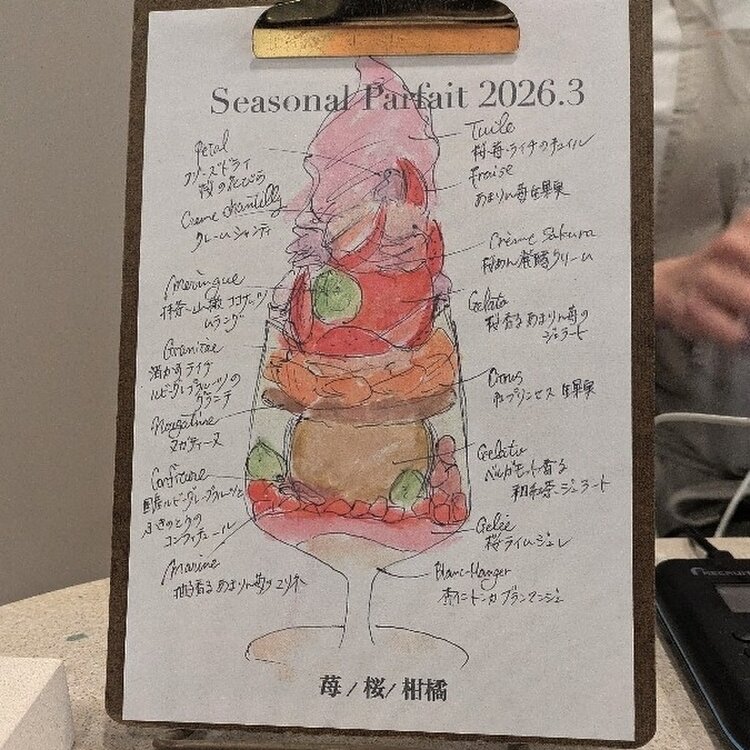 Seasonal Parfait 2026.3
Petal
フリーズドライ
桜の花びら
Creme chantilly
クレームシャンティ
Meringue
ココナッツ
ムラング
Granitée
ライチ
ルビーグレープフルーツの
グラニテ
Nougatine
ヌガティーヌ
Confiture
国産ルビーグレープフルーツと
ふきのとうの
コンフィチュール
Marine
柚子香るあまりん苺のマリネ
Tuile
桜・苺・ライチのチュイル
Fraise
あまりん苺生果実
Crème Sakura
桜あん発酵クリーム
Gelato
桜香るあまりん苺の
ジェラート
Citrus
プリンセス 生果実
Gelato
ベルガモット香る
和紅茶ジェラート
Gelée
桜ライムジュレ
Blanc-Manger
杏仁トンカブランマンジェ
苺/桜/柑橘
RECRUIT